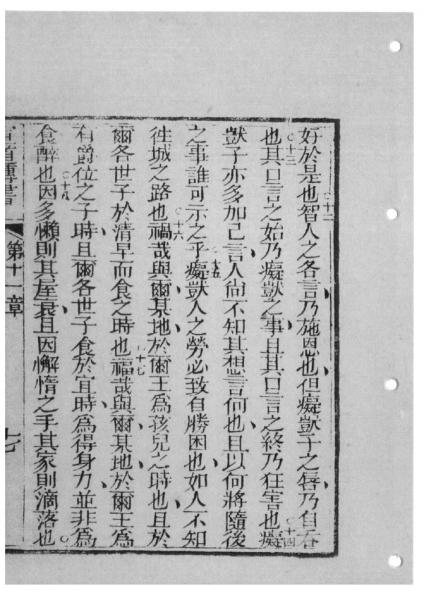 好於是也智人之各言乃施恩也但癡獃子之唇乃自吞
○十三
也其口言之始乃癡獃之事且其口言之終乃狂害也癡
○十四
獃子亦多加己言人尙不知其想言何也且以何將隨後
之事誰可示之乎癡獃人之勞必致自勝困也如人不知
○十五
徃城之路也禍哉與爾某地於爾王爲孩兒之時也且於
○十六
爾各世子於清早而食之時也福哉與爾某地於爾王爲
○十七
有爵位之子時且爾各世子食於宜時爲得身力並非爲
食醉也因多懶則其屋衰且因懈惰之手其家則滴落也
○十八
第十一章